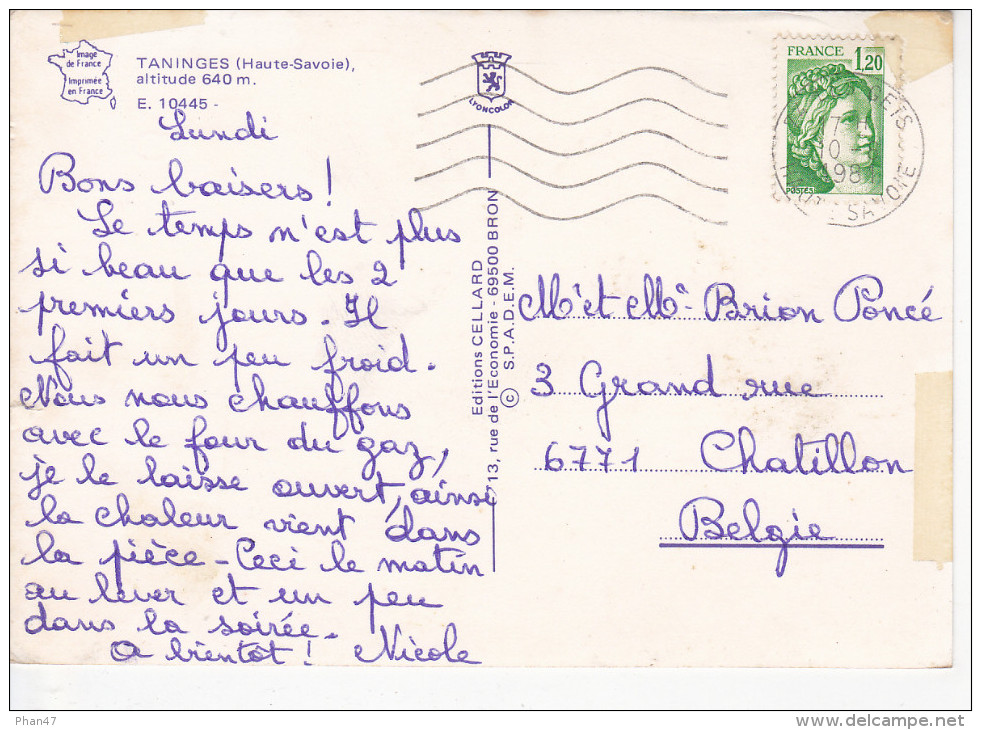 Image
de France
Imprimée
en France
TANINGES (Haute-Savoie),
altitude 640 m.
E. 10445 -
LYONCOLOR
FRANCE 1,20
POSTES
GETS
17 H
SAVOIE
Lundi
Bons baisers !
Le temps n'est plus
si beau que les 2
premiers jours. Il
fait un peu froid.
Nous nous chauffons
avec le four du gaz,
je le laisse ouvert, ainsi
la chaleur vient dans
la pièce - Ceci le matin
au lever et un peu
dans la soirée.
A bientôt ! Nicole
Editions CELLARD
713, rue de l'Economie - 69500 BRON
© S.P.A.D.E.M.
Mr et Me - Brion Poncé
3 Grand rue
6771 Chatillon
Belgie
Phan47
delcampe.net